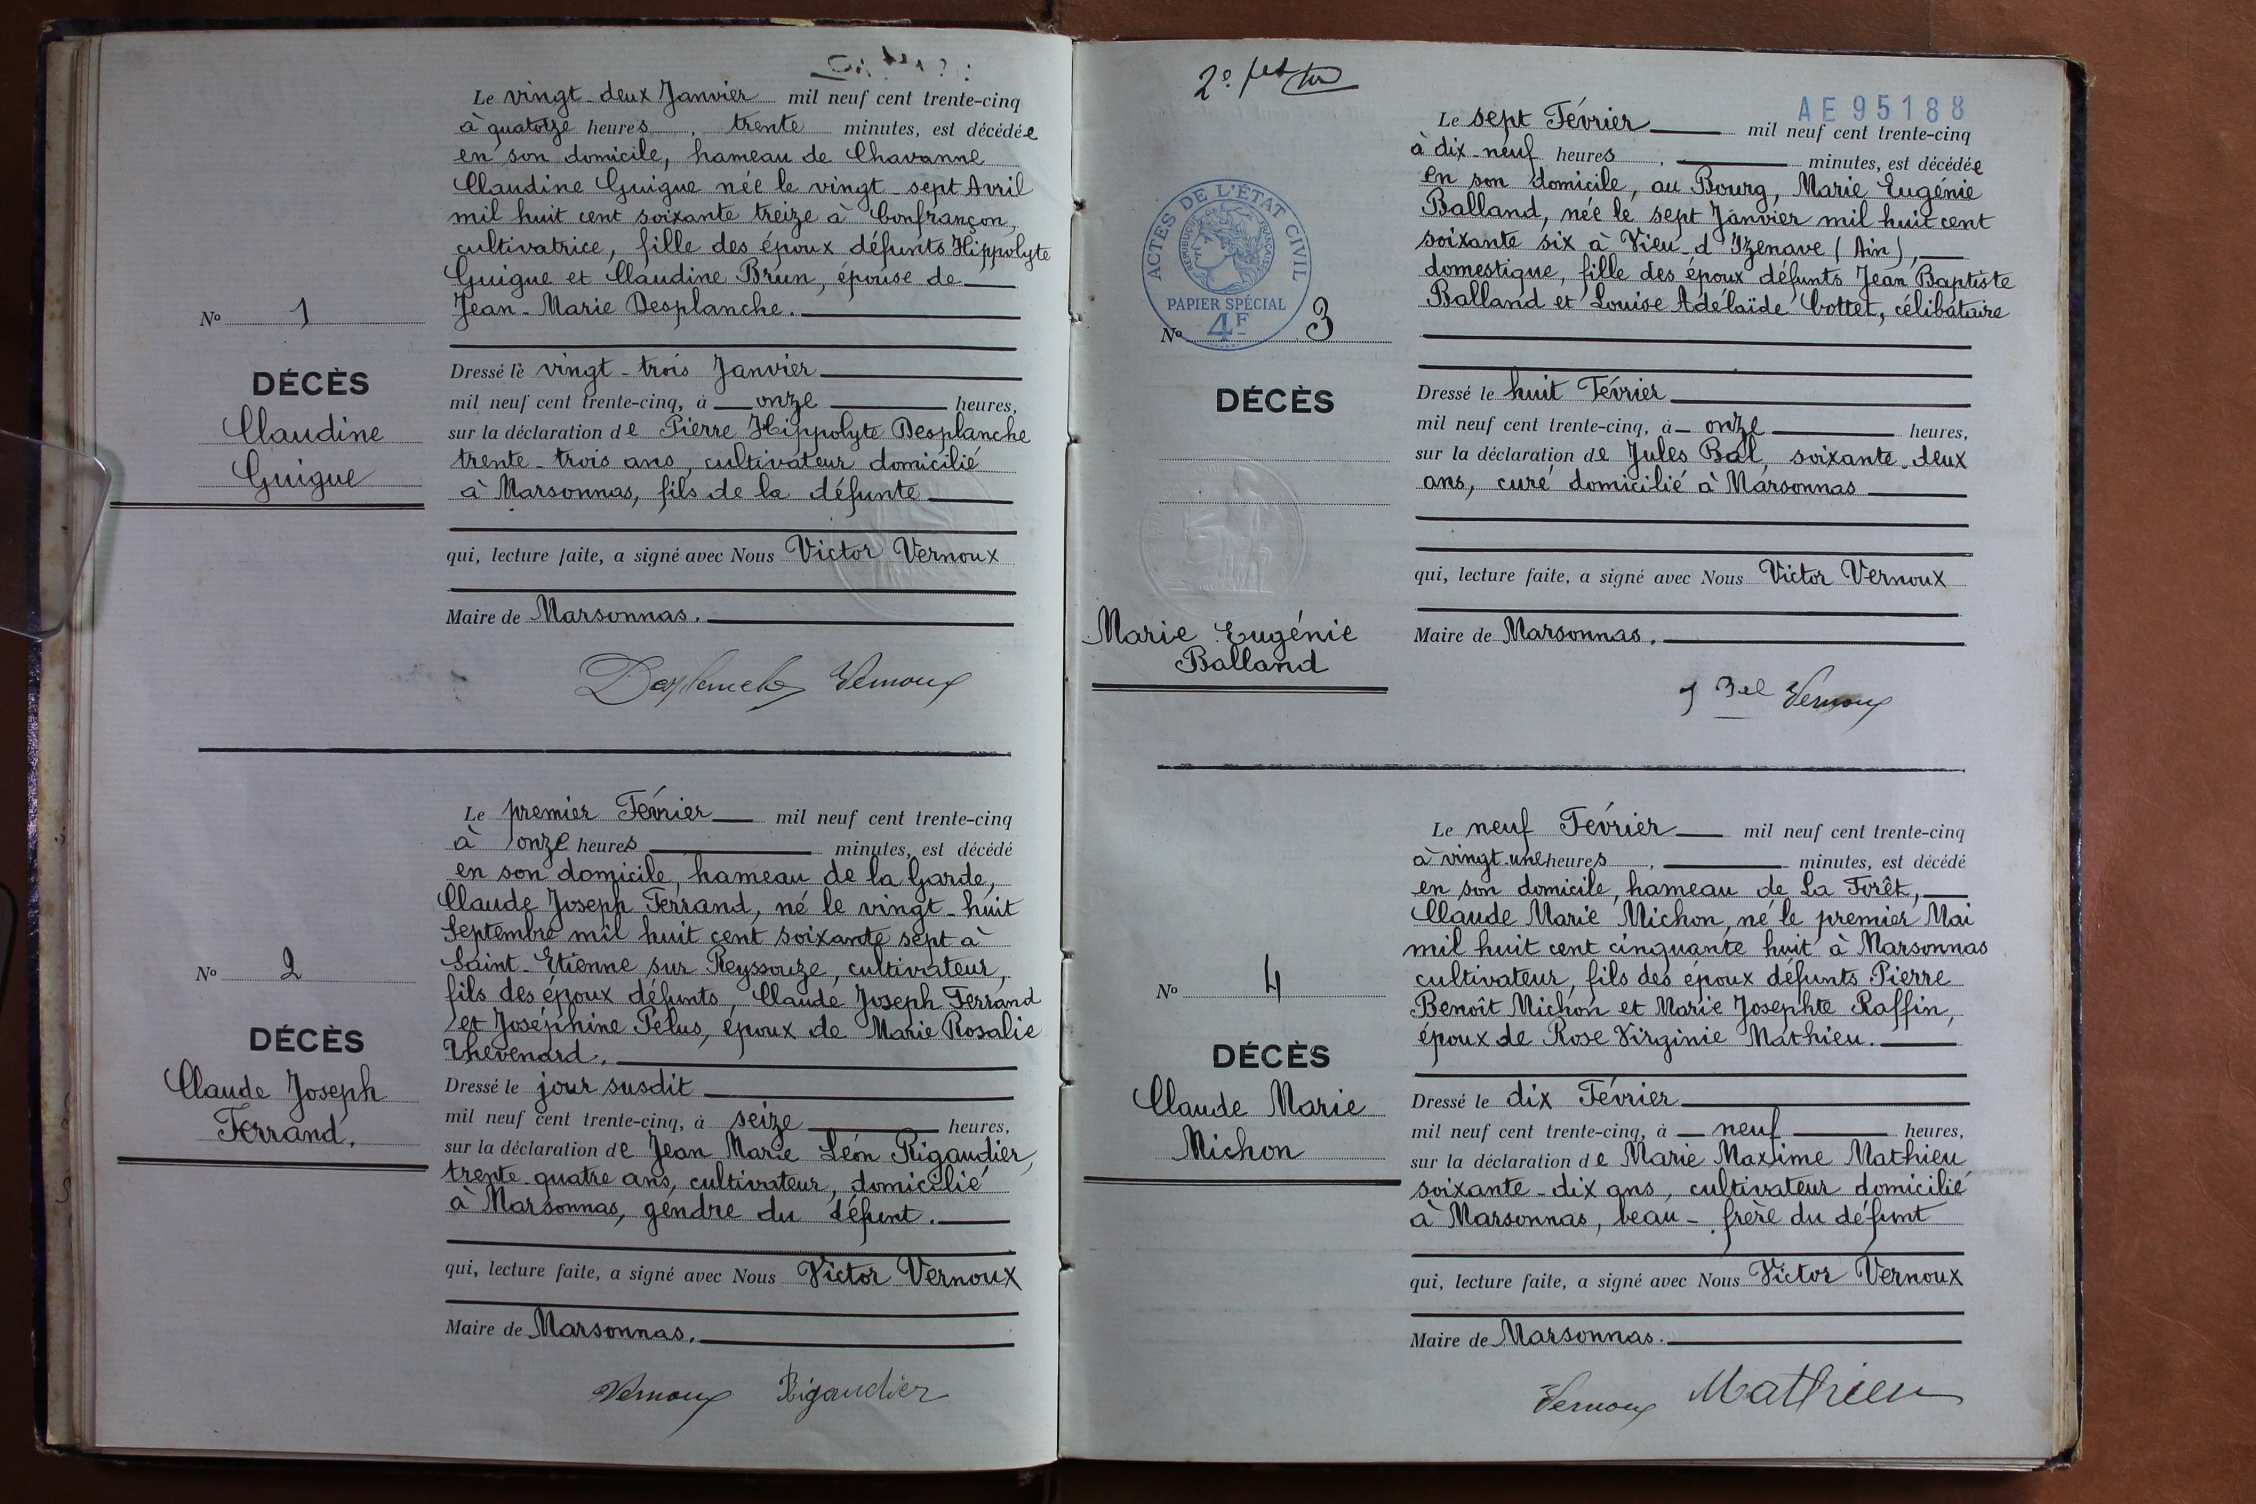 Le vingt-deux Janvier mil neuf cent trente-cinq
à quatorze heures, trente minutes, est décédée
en son domicile, hameau de Chavanne
Claudine Guigue née le vingt-sept Avril
mil huit cent soixante treize à Confrançon,
cultivatrice, fille des époux défunts Hippolyte
Guigue et Claudine Brun, épouse de
Jean-Marie Desplanche.
No 1
DÉCÈS
Claudine
Guigue
Dressé le vingt-trois Janvier
mil neuf cent trente-cinq, à onze heures,
sur la déclaration de Pierre Hippolyte Desplanche
trente-trois ans, cultivateur domicilié
à Marsonnas, fils de la défunte
qui, lecture faite, a signé avec Nous Victor Vernoux
Maire de Marsonnas.
Desplanche Vernoux
Le premier Février mil neuf cent trente-cinq
à onze heures minutes, est décédé
en son domicile, hameau de la Garde,
Claude Joseph Ferrand, né le vingt-huit
Septembre mil huit cent soixante sept à
Saint-Etienne sur Reyssouze, cultivateur,
fils des époux défunts, Claude Joseph Ferrand
et Joséphine Pelus, époux de Marie Rosalie
Thevenard.
No 2
DÉCÈS
Claude Joseph
Ferrand.
Dressé le jour susdit
mil neuf cent trente-cinq, à seize heures,
sur la déclaration de Jean Marie Léon Rigaudier,
trente-quatre ans, cultivateur, domicilié
à Marsonnas, gendre du défunt.
qui, lecture faite, a signé avec Nous Victor Vernoux
Maire de Marsonnas.
Vernoux Rigaudier
2e
AE95188
ACTES DE L'ÉTAT CIVIL
RÉPUBLIQUE FRANÇAISE
PAPIER SPÉCIAL
4F
Le sept Février mil neuf cent trente-cinq
à dix-neuf heures, minutes, est décédée
en son domicile, au Bourg, Marie Eugénie
Balland, née le sept Janvier mil huit cent
soixante six à Vieu-d'Izenave (Ain),
domestique, fille des époux défunts Jean Baptiste
Balland et Louise Adélaïde Cottet, célibataire
No 3
DÉCÈS
Marie Eugénie
Balland
Dressé le huit Février
mil neuf cent trente-cinq, à onze heures,
sur la déclaration de Jules Bal, soixante-deux
ans, curé domicilié à Marsonnas
qui, lecture faite, a signé avec Nous Victor Vernoux
Maire de Marsonnas.
J Bal Vernoux
Le neuf Février mil neuf cent trente-cinq
à vingt-une heures, minutes, est décédé
en son domicile, hameau de La Forêt,
Claude Marie Michon, né le premier Mai
mil huit cent cinquante huit à Marsonnas
cultivateur, fils des époux défunts Pierre
Benoît Michon et Marie Josephte Raffin,
époux de Rose Virginie Mathieu.
No 4
DÉCÈS
Claude Marie
Michon
Dressé le dix Février
mil neuf cent trente-cinq, à neuf heures,
sur la déclaration de Marie Maxime Mathieu
soixante-dix ans, cultivateur domicilié
à Marsonnas, beau-frère du défunt
qui, lecture faite, a signé avec Nous Victor Vernoux
Maire de Marsonnas.
Vernoux Mathieu